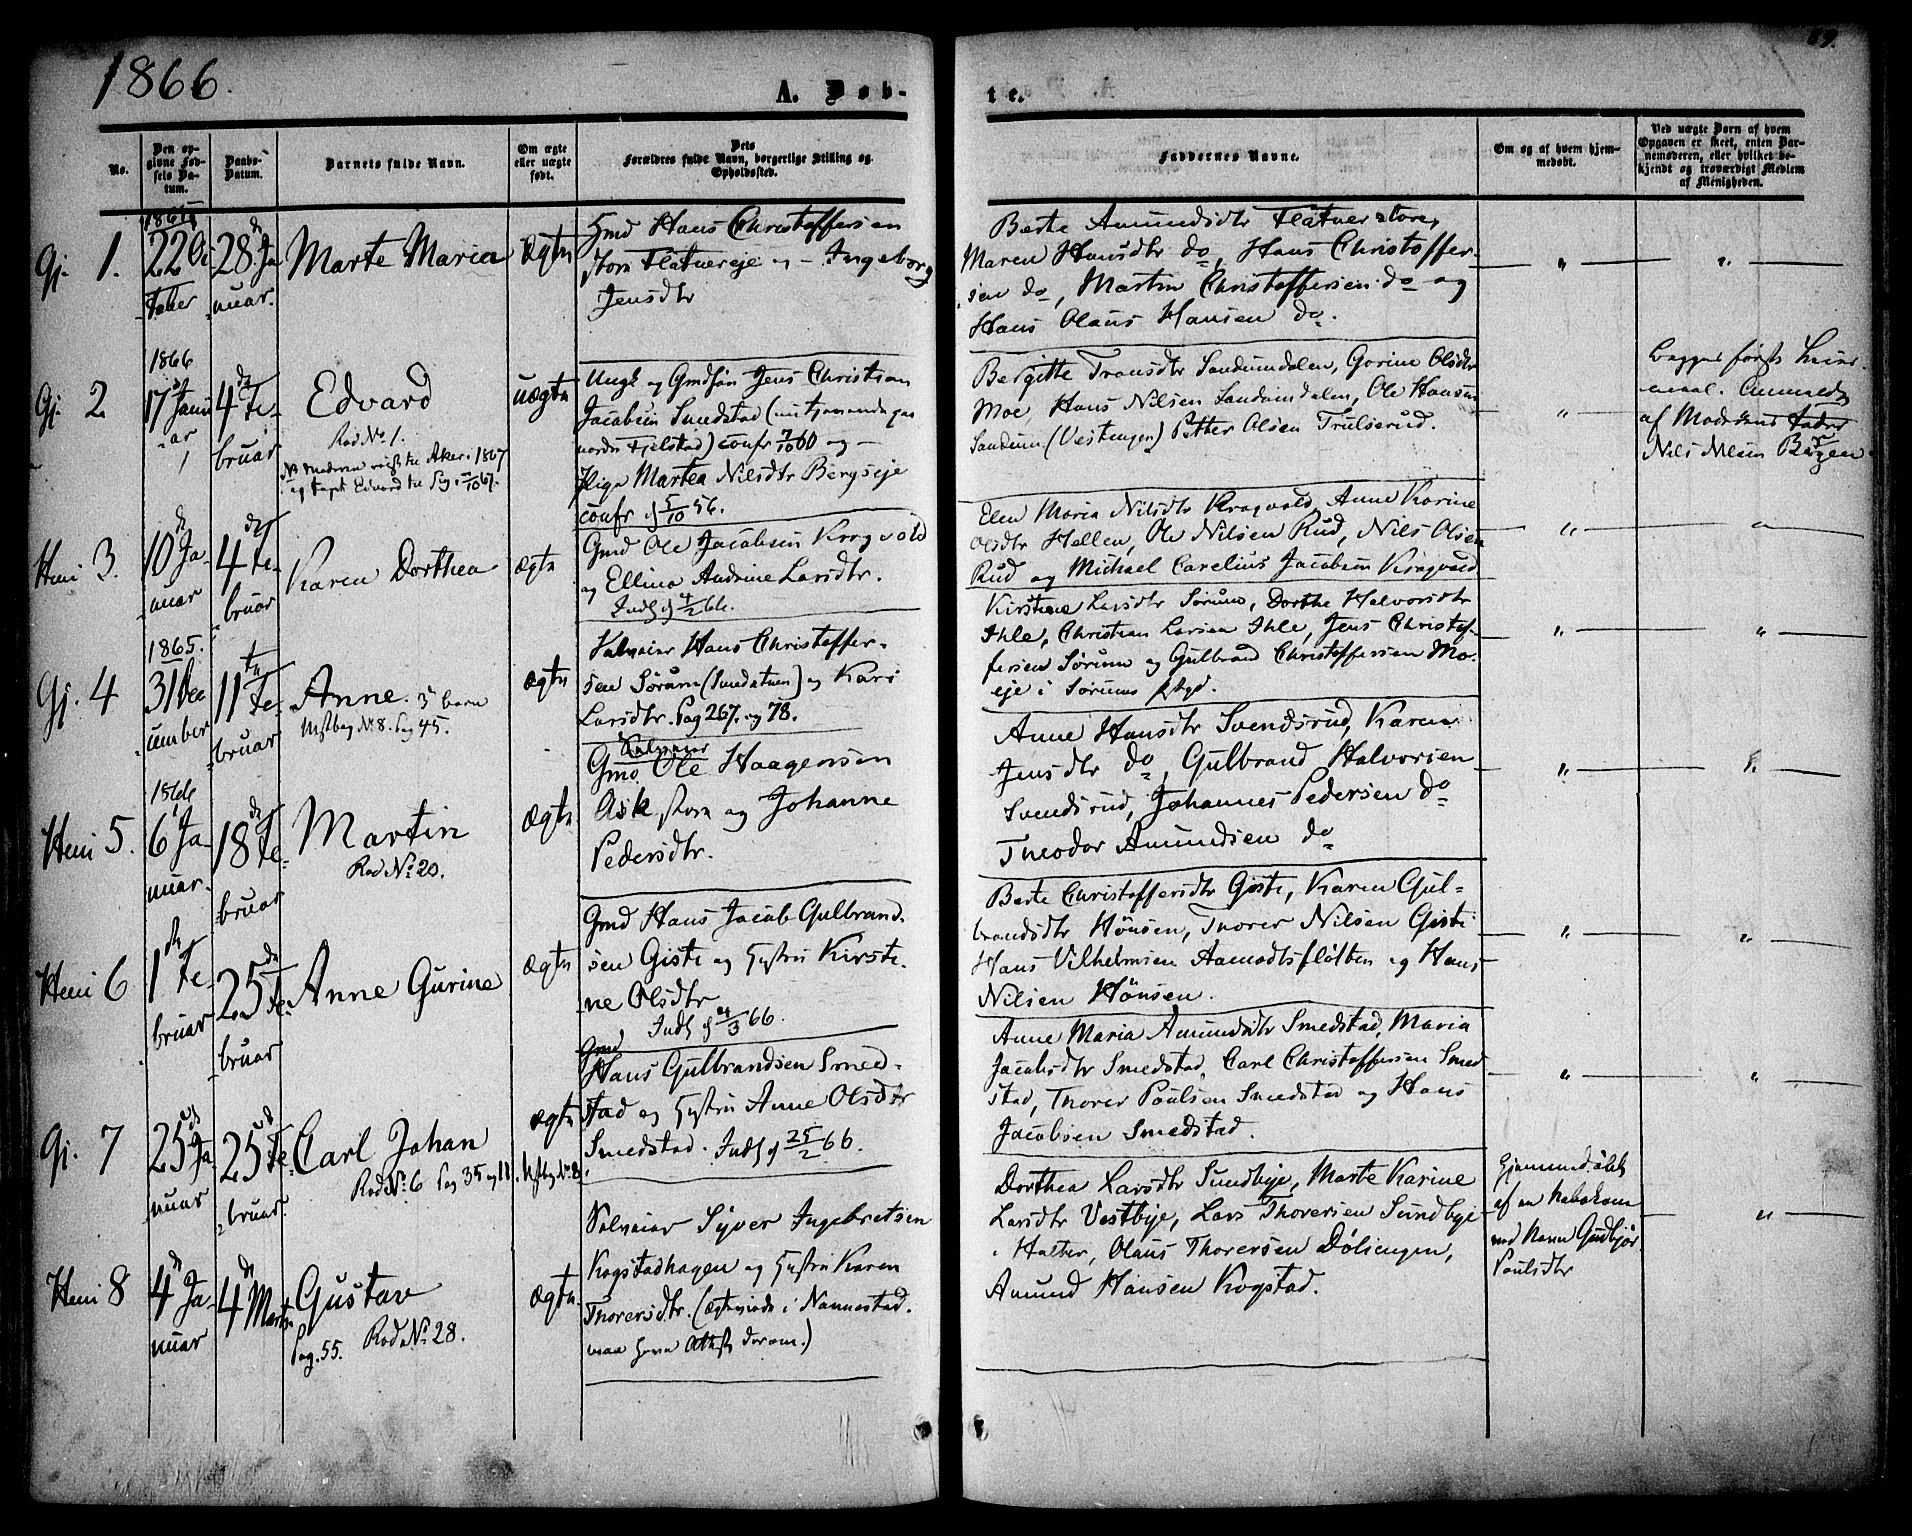 1866.
69.
A. Døb-
te.
No.
Den op-
givne Fød-
sels Da-
tum.
Daabs-
Datum.
Barnets fulde Navn.
Om ægte
eller uægte
født.
Dets
Forældres fulde Navn, borgerlige Stilling og
Opholdssted.
Faddernes Navne.
Om og af hvem hjem-
medøbt.
Ved uægte Born af hvem
Opgaven er skeet, enten Bar-
nemoderen, eller hvilket be-
kjendt og troværdigt Medlem
af Menigheden.
Gj. 1.
1865
22 Oc
tober
28de Ja
nuar.
Marte Maria
ægtn
Gmd Hans Christoffersen
store Flatnereje og - Ingeborg
Jensdtr
Berte Amundsdtr Flatner store,
Maren Hansdtr do, Hans Christoffer-
sen do, Martin Christoffersen do og
Hans Olaus Hansen do.
Gj. 2
1866
17de Janu
ar
4de Fe-
bruar
Edvard
Rad No 1.
uægtn
Ungk og Gmdsøn Jens Christian
Jacobsen Smedstad
nordre Fjelstad) confr 7/10 60 og -
Pige Martea Nilsdtr Bergseje
confr d 5/10 56.
Bergitte Transdtr Sandumdalen, Gorine Olsdtr
Moe Hans Nilsen Sandumdalen, Ole Hansen
Sandum (Vestengen) Petter Olsen Trulserud.
Begges første Leier-
maal. Anmeldt
af Moderens Fader
Nils Nilsen
Heni 3.
10de Ja-
nuar
4de Fe-
bruar
Karen Dorthea
ægtn
Gmd Ole Jacobsen Krogvold
og Ellina Andrine Larsdtr.
Inds d 4/2 66.
Elen Maria Nilsdtr Kragvold, Anne Karine
Olsdtr Hellen, Ole Nilsen Rud, Nils Olsen
Rud og Michael Carelius Jacobsen Kragvold
Gj. 4
1865.
31 De
cember
11te Fe-
bruar
Anne. 3de barn
No. 8. Pag 45.
ægtn
Selveier Hans Christoffer-
sen Sørum (Smedstuen) og Kari
Larsdtr. Pag 267. og 78.
Kirstine Larsdtr Sørum, Dorthe Halvorsdtr
Ihle, Christian Larsen Ihle, Jens Christof-
fersen Sørum og Gulbrand Christoffersen Mo-
eje i Sørums
Heni 5.
1866
6 Ja-
nuar.
18de Fe-
bruar
Martin
Rad No. 20.
ægtn
Selveier
Gmd Ole Haagensen
Ask store og Johanne
Pedersdtr.
Anne Hansdtr Svendsrud, Karen
Jensdtr do, Gulbrand Halvorsen
Svendsrud, Johannes Pedersen do
Theodor Amundsen do
Heni 6
1ste Fe-
bruar
25de Fe.
bruar
Anne Gurine
ægtn
Gmd Hans Jacob Gulbrand-
sen Giste og Hustru Kirsti-
ne Olsdtr
Inds d 4/3 66.
Berte Christoffersdtr Giste, Karen Gul-
brandsdtr Hönsen, Thorer Nilsen Giste
Hans Vilhelmsen Aamodtsfløtten og Hans
Nilsen Hönsen.
Gj. 7
25de Ja-
nuar
25de Fe-
bruar.
Carl Johan
Rad No. 6 Pag 35 og
ægtn
Gmd
Hans Gulbrandsen Smed-
stad og Hustru Anne Olsdtr
Smedstad. Inds d 25/2 66.
Anne Maria Amundsdtr Smedstad, Maria
Jacobsdtr Smedstad, Carl Christoffersen Smed
stad, Thorer Paulsen Smedstad og Hans
Jacobsen Smedstad.
Heni 8
4de Ja-
nuar
4de Marts
Gustav
Pag. 55. Rad No. 28.
ægtn.
Selveier Syver Ingebretsen
Kogstadhagen og Hustru Karen
Thorersdtr. (Ægteviede i Nannestad.
maa have Attest derom.)
Dorthea Larsdtr Sundbye, Marte Karine
Larsdtr Vestbye, Lars Thorersen Sundbye
Halter, Olaus Thorersen Döliengen,
Amund Hansen Kogstad.
Hjemmedøbt
af en
med Navn Gudbjør
Poulsdtr